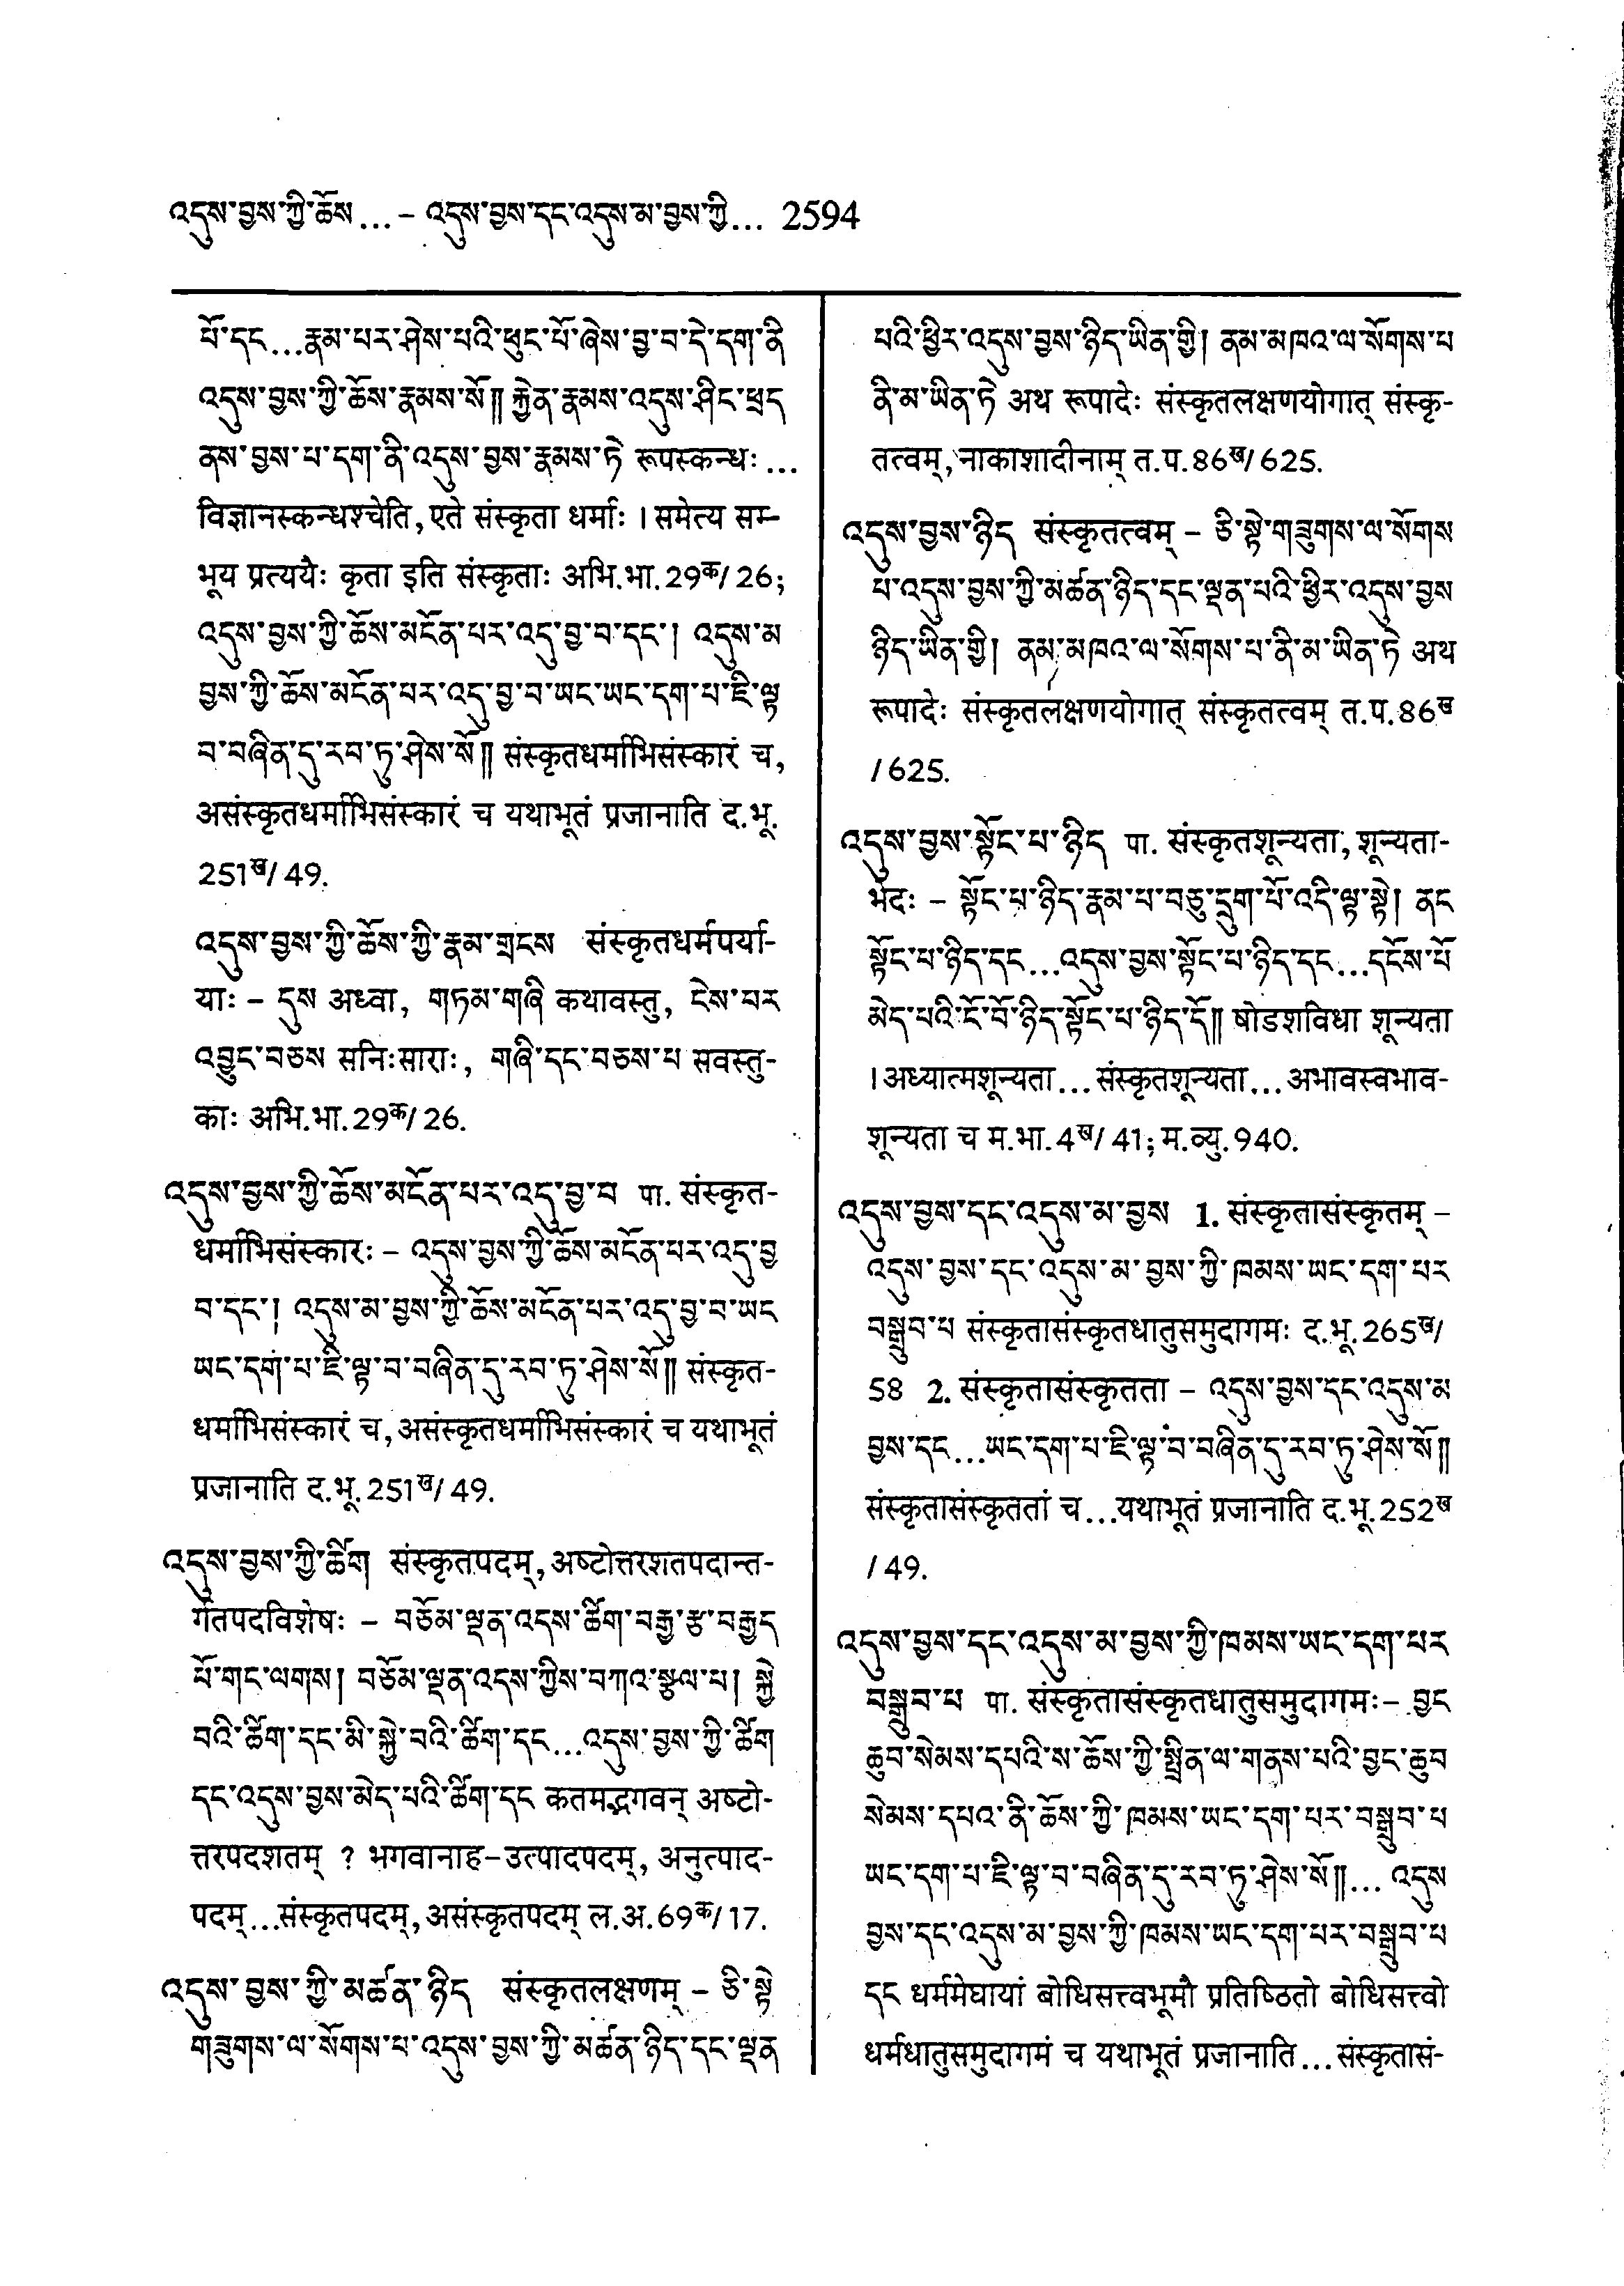 འདུས་བྱས་ཀྱི་ཆོས... – འདུས་བྱས་དང་འདུས་མ་བྱས་ཀྱི... 2594
པོ་དང...རྣམ་པར་ཤེས་པའི་ཕུང་པོ་ཞེས་བྱ་བ་དེ་དག་ནི
འདུས་བྱས་ཀྱི་ཆོས་རྣམས་སོ།། རྐྱེན་རྣམས་འདུས་ཤིང་ཕྲད
ནས་བྱས་པ་དག་ནི་འདུས་བྱས་རྣམས་ཏེ रूपस्कन्धः...
विज्ञानस्कन्धश्चेति, एते संस्कृता धर्माः । समेत्य सम्-
भूय प्रत्ययैः कृता इति संस्कृताः अभि.भा.29क/26;
འདུས་བྱས་ཀྱི་ཆོས་མངོན་པར་འདུ་བྱ་བ་དང་། འདུས་མ
བྱས་ཀྱི་ཆོས་མངོན་པར་འདུ་བྱ་བ་ཡང་ཡང་དག་པ་ཇི་ལྟ
བ་བཞིན་དུ་རབ་ཏུ་ཤེས་སོ།། संस्कृतधर्माभिसंस्कारं च,
असंस्कृतधर्माभिसंस्कारं च यथाभूतं प्रजानाति द.भू.
251ख/49.
འདུས་བྱས་ཀྱི་ཆོས་ཀྱི་རྣམ་གྲངས संस्कृतधर्मपर्या-
याः – དུས अध्वा, གཏམ་གཞི कथावस्तु, ངེས་པར
འབྱུང་བཅས सनिःसाराः, གཞི་དང་བཅས་པ सवस्तु-
काः अभि.भा.29क/26.
འདུས་བྱས་ཀྱི་ཆོས་མངོན་པར་འདུ་བྱ་བ पा. संस्कृत-
धर्माभिसंस्कारः – འདུས་བྱས་ཀྱི་ཆོས་མངོན་པར་འདུ་བྱ
བ་དང་། འདུས་མ་བྱས་ཀྱི་ཆོས་མངོན་པར་འདུ་བྱ་བ་ཡང
ཡང་དག་པ་ཇི་ལྟ་བ་བཞིན་དུ་རབ་ཏུ་ཤེས་སོ།། संस्कृत-
धर्माभिसंस्कारं च, असंस्कृतधर्माभिसंस्कारं च यथाभूतं
प्रजानाति द.भू.251ख/49.
འདུས་བྱས་ཀྱི་ཚིག संस्कृतपदम्, अष्टोत्तरशतपदान्त-
र्गतपदविशेषः – བཅོམ་ལྡན་འདས་ཚིག་བརྒྱ་རྩ་བརྒྱད
པོ་གང་ལགས། བཅོམ་ལྡན་འདས་ཀྱིས་བཀའ་སྩལ་པ། སྐྱེ
བའི་ཚིག་དང་མི་སྐྱེ་བའི་ཚིག་དང...འདུས་བྱས་ཀྱི་ཚིག
དང་འདུས་བྱས་མེད་པའི་ཚིག་དང कतमद्भगवन् अष्टो-
त्तरपदशतम् ? भगवानाह–उत्पादपदम्, अनुत्पाद-
पदम्...संस्कृतपदम्, असंस्कृतपदम् ल.अ.69क/17.
འདུས་བྱས་ཀྱི་མཚན་ཉིད संस्कृतलक्षणम् – ཅི་སྟེ
གཟུགས་ལ་སོགས་པ་འདུས་བྱས་ཀྱི་མཚན་ཉིད་དང་ལྡན
པའི་ཕྱིར་འདུས་བྱས་ཉིད་ཡིན་གྱི། ནམ་མཁའ་ལ་སོགས་པ
ནི་མ་ཡིན་ཏེ अथ रूपादेः संस्कृतलक्षणयोगात् संस्कृ-
तत्वम्, नाकाशादीनाम् त.प.86ख/625.
འདུས་བྱས་ཉིད संस्कृतत्वम् – ཅི་སྟེ་གཟུགས་ལ་སོགས
པ་འདུས་བྱས་ཀྱི་མཚན་ཉིད་དང་ལྡན་པའི་ཕྱིར་འདུས་བྱས
ཉིད་ཡིན་གྱི། ནམ་མཁའ་ལ་སོགས་པ་ནི་མ་ཡིན་ཏེ अथ
रूपादेः संस्कृतलक्षणयोगात् संस्कृतत्वम् त.प.86ख
/625.
འདུས་བྱས་སྟོང་པ་ཉིད पा. संस्कृतशून्यता, शून्यता-
भेदः – སྟོང་པ་ཉིད་རྣམ་པ་བཅུ་དྲུག་པོ་འདི་ལྟ་སྟེ། ནང
སྟོང་པ་ཉིད་དང...འདུས་བྱས་སྟོང་པ་ཉིད་དང...དངོས་པོ
མེད་པའི་ངོ་བོ་ཉིད་སྟོང་པ་ཉིད་དོ།། षोडशविधा शून्यता
। अध्यात्मशून्यता...संस्कृतशून्यता...अभावस्वभाव-
शून्यता च म.भा.4ख/41; म.व्यु.940.
འདུས་བྱས་དང་འདུས་མ་བྱས 1. संस्कृतासंस्कृतम् –
འདུས་བྱས་དང་འདུས་མ་བྱས་ཀྱི་ཁམས་ཡང་དག་པར
བསྒྲུབ་པ संस्कृतासंस्कृतधातुसमुदागमः द.भू.265ख/
58 2. संस्कृतासंस्कृतता – འདུས་བྱས་དང་འདུས་མ
བྱས་དང...ཡང་དག་པ་ཇི་ལྟ་བ་བཞིན་དུ་རབ་ཏུ་ཤེས་སོ།།
संस्कृतासंस्कृततां च...यथाभूतं प्रजानाति द.भू.252ख
/49.
འདུས་བྱས་དང་འདུས་མ་བྱས་ཀྱི་ཁམས་ཡང་དག་པར
བསྒྲུབ་པ पा. संस्कृतासंस्कृतधातुसमुदागमः– བྱང
ཆུབ་སེམས་དཔའི་ས་ཆོས་ཀྱི་སྤྲིན་ལ་གནས་པའི་བྱང་ཆུབ
སེམས་དཔའ་ནི་ཆོས་ཀྱི་ཁམས་ཡང་དག་པར་བསྒྲུབ་པ
ཡང་དག་པ་ཇི་ལྟ་བ་བཞིན་དུ་རབ་ཏུ་ཤེས་སོ།།... འདུས
བྱས་དང་འདུས་མ་བྱས་ཀྱི་ཁམས་ཡང་དག་པར་བསྒྲུབ་པ
དང धर्ममेघायां बोधिसत्त्वभूमौ प्रतिष्ठितो बोधिसत्त्वो
धर्मधातुसमुदागमं च यथाभूतं प्रजानाति...संस्कृतासं-